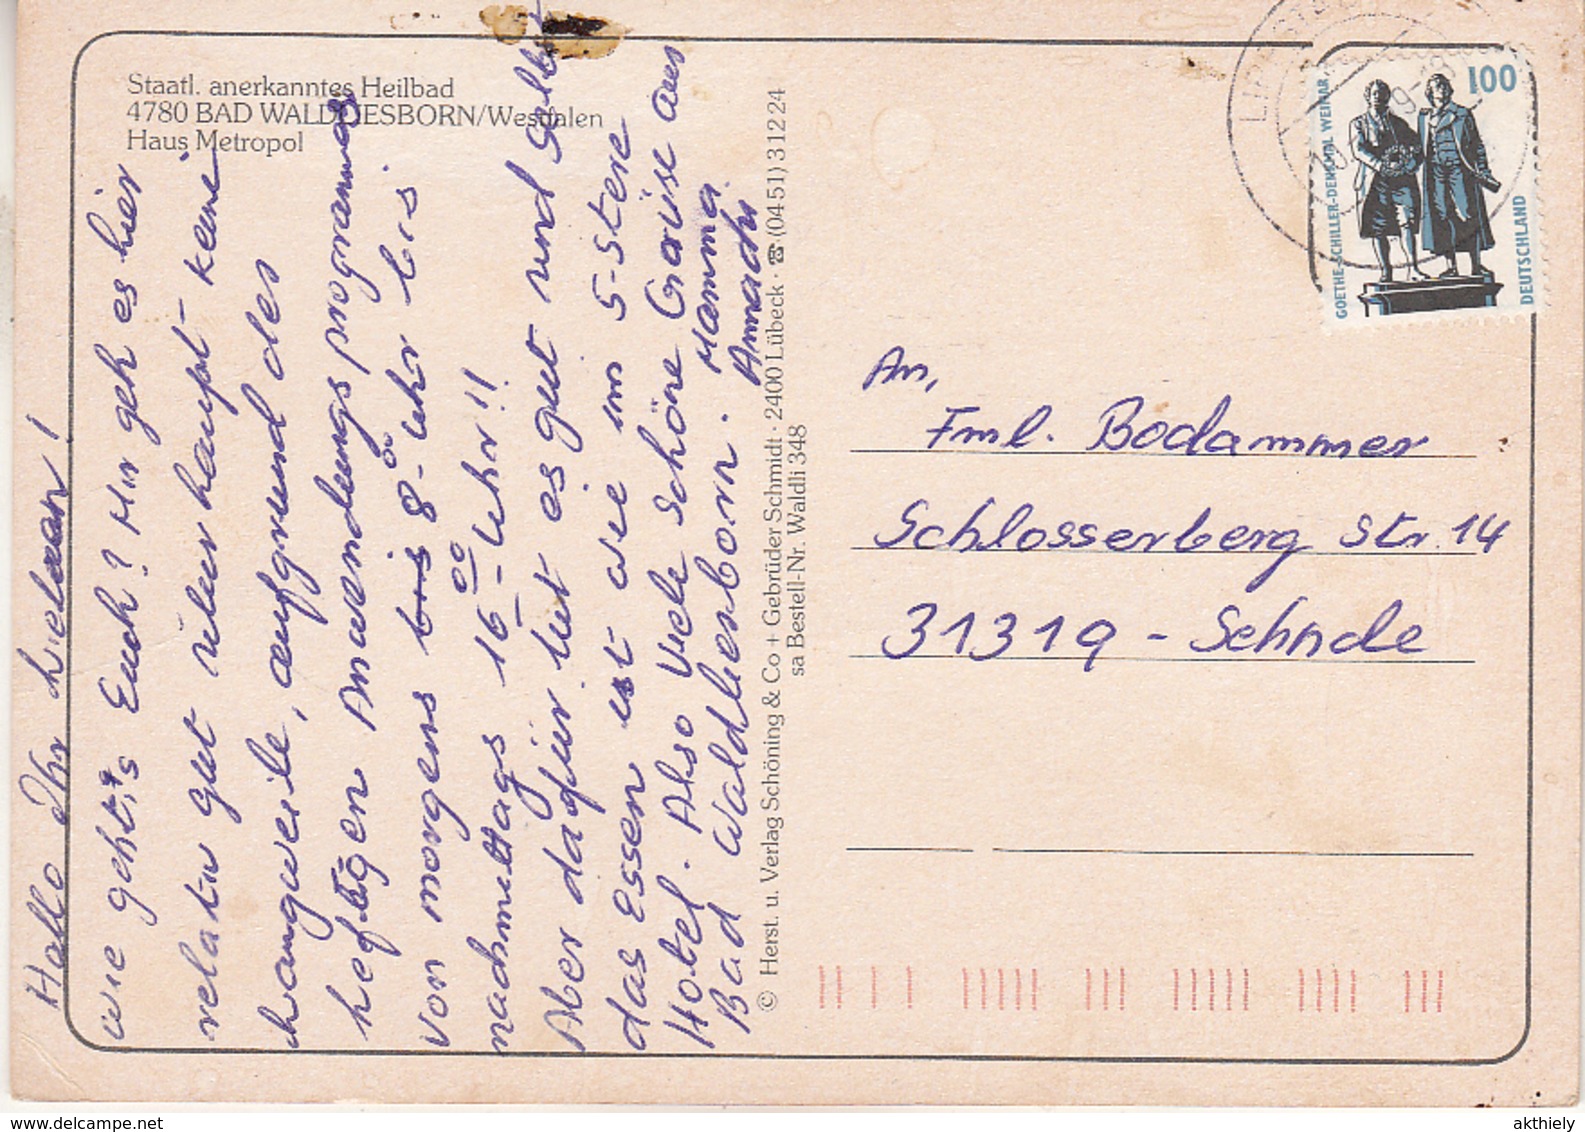 Staatl. anerkanntes Heilbad
4780 BAD WALDLIESBORN/Westfalen
Haus Metropol
Hallo Ihr Lieben!
wie geht,s Euch? Mir geh es hier
relativ gut überhaupt keine
Langweile, aufgrund des
heftigen Anwendungsprogrammes
von morgens bis 8.00 Uhr bis
nachmittags 16.00 Uhr!!
Aber dafür tut es gut und selbst
das Essen ist wie im 5-Sterne
Hotel. Also viele schöne Grüße aus
Bad Waldliesborn. Mamma
Annachi
© Herst. u. Verlag Schöning & Co + Gebrüder Schmidt · 2400 Lübeck · ☎ (0451) 31224
sa Bestell-Nr. Waldli 348
100
GOETHE-SCHILLER-DENKMAL WEIMAR
DEUTSCHLAND
An,
Fml. Bodammer
Schlosserberg Str. 14
31319 - Sehnde
akthiely